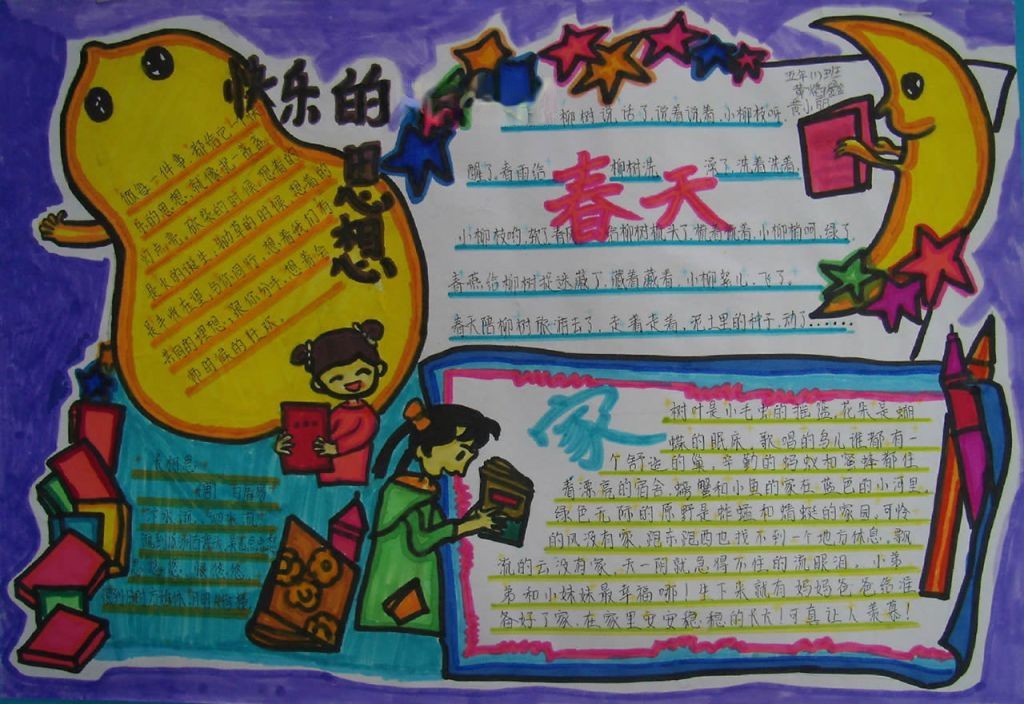 快乐的
思想
做每一件事,都给它一个快
乐的思想,就像把一盏盏
灯点亮。砍柴的时候,想着的
是火的诞生;锄草的时候,想着的
是丰收在望;与你同行,想着我们有
共同的理想;跟你分手,想着会
师时候的狂欢。
五年(1)班
黄小丽
春天
柳树说话了,说着说着,小柳枝呀
醒了。春雨给柳树洗澡了,洗着洗着,
小柳枝哟,软了。春风给柳树梳头了,梳着梳着,小柳梢呵,绿了。
春燕给柳树捉迷藏了,藏着藏着,小柳絮儿,飞了。
春天陪柳树旅游去了,走着走着,泥土里的种子,动了……
家
树叶是小毛虫的摇篮,花朵是蝴
蝶的眠床,歌唱的鸟儿谁都有一
个舒适的巢,辛勤的蚂蚁和蜜蜂都住
着漂亮的宿舍,螃蟹和小鱼的家在蓝色的小河里,
绿色无际的原野是蚱蜢和蜻蜓的家园,可怜
的风没有家,跑东跑西也找不到一个地方休息,飘
流的云没有家,天一阴就急得不住的流眼泪。小弟
弟和小妹妹最幸福哪!生下来就有妈妈爸爸给准
备好了家,在家里安安稳稳的长大!可真让人羡慕!
长相思
白居易
汴水流,泗水流,
思悠悠,恨悠悠,